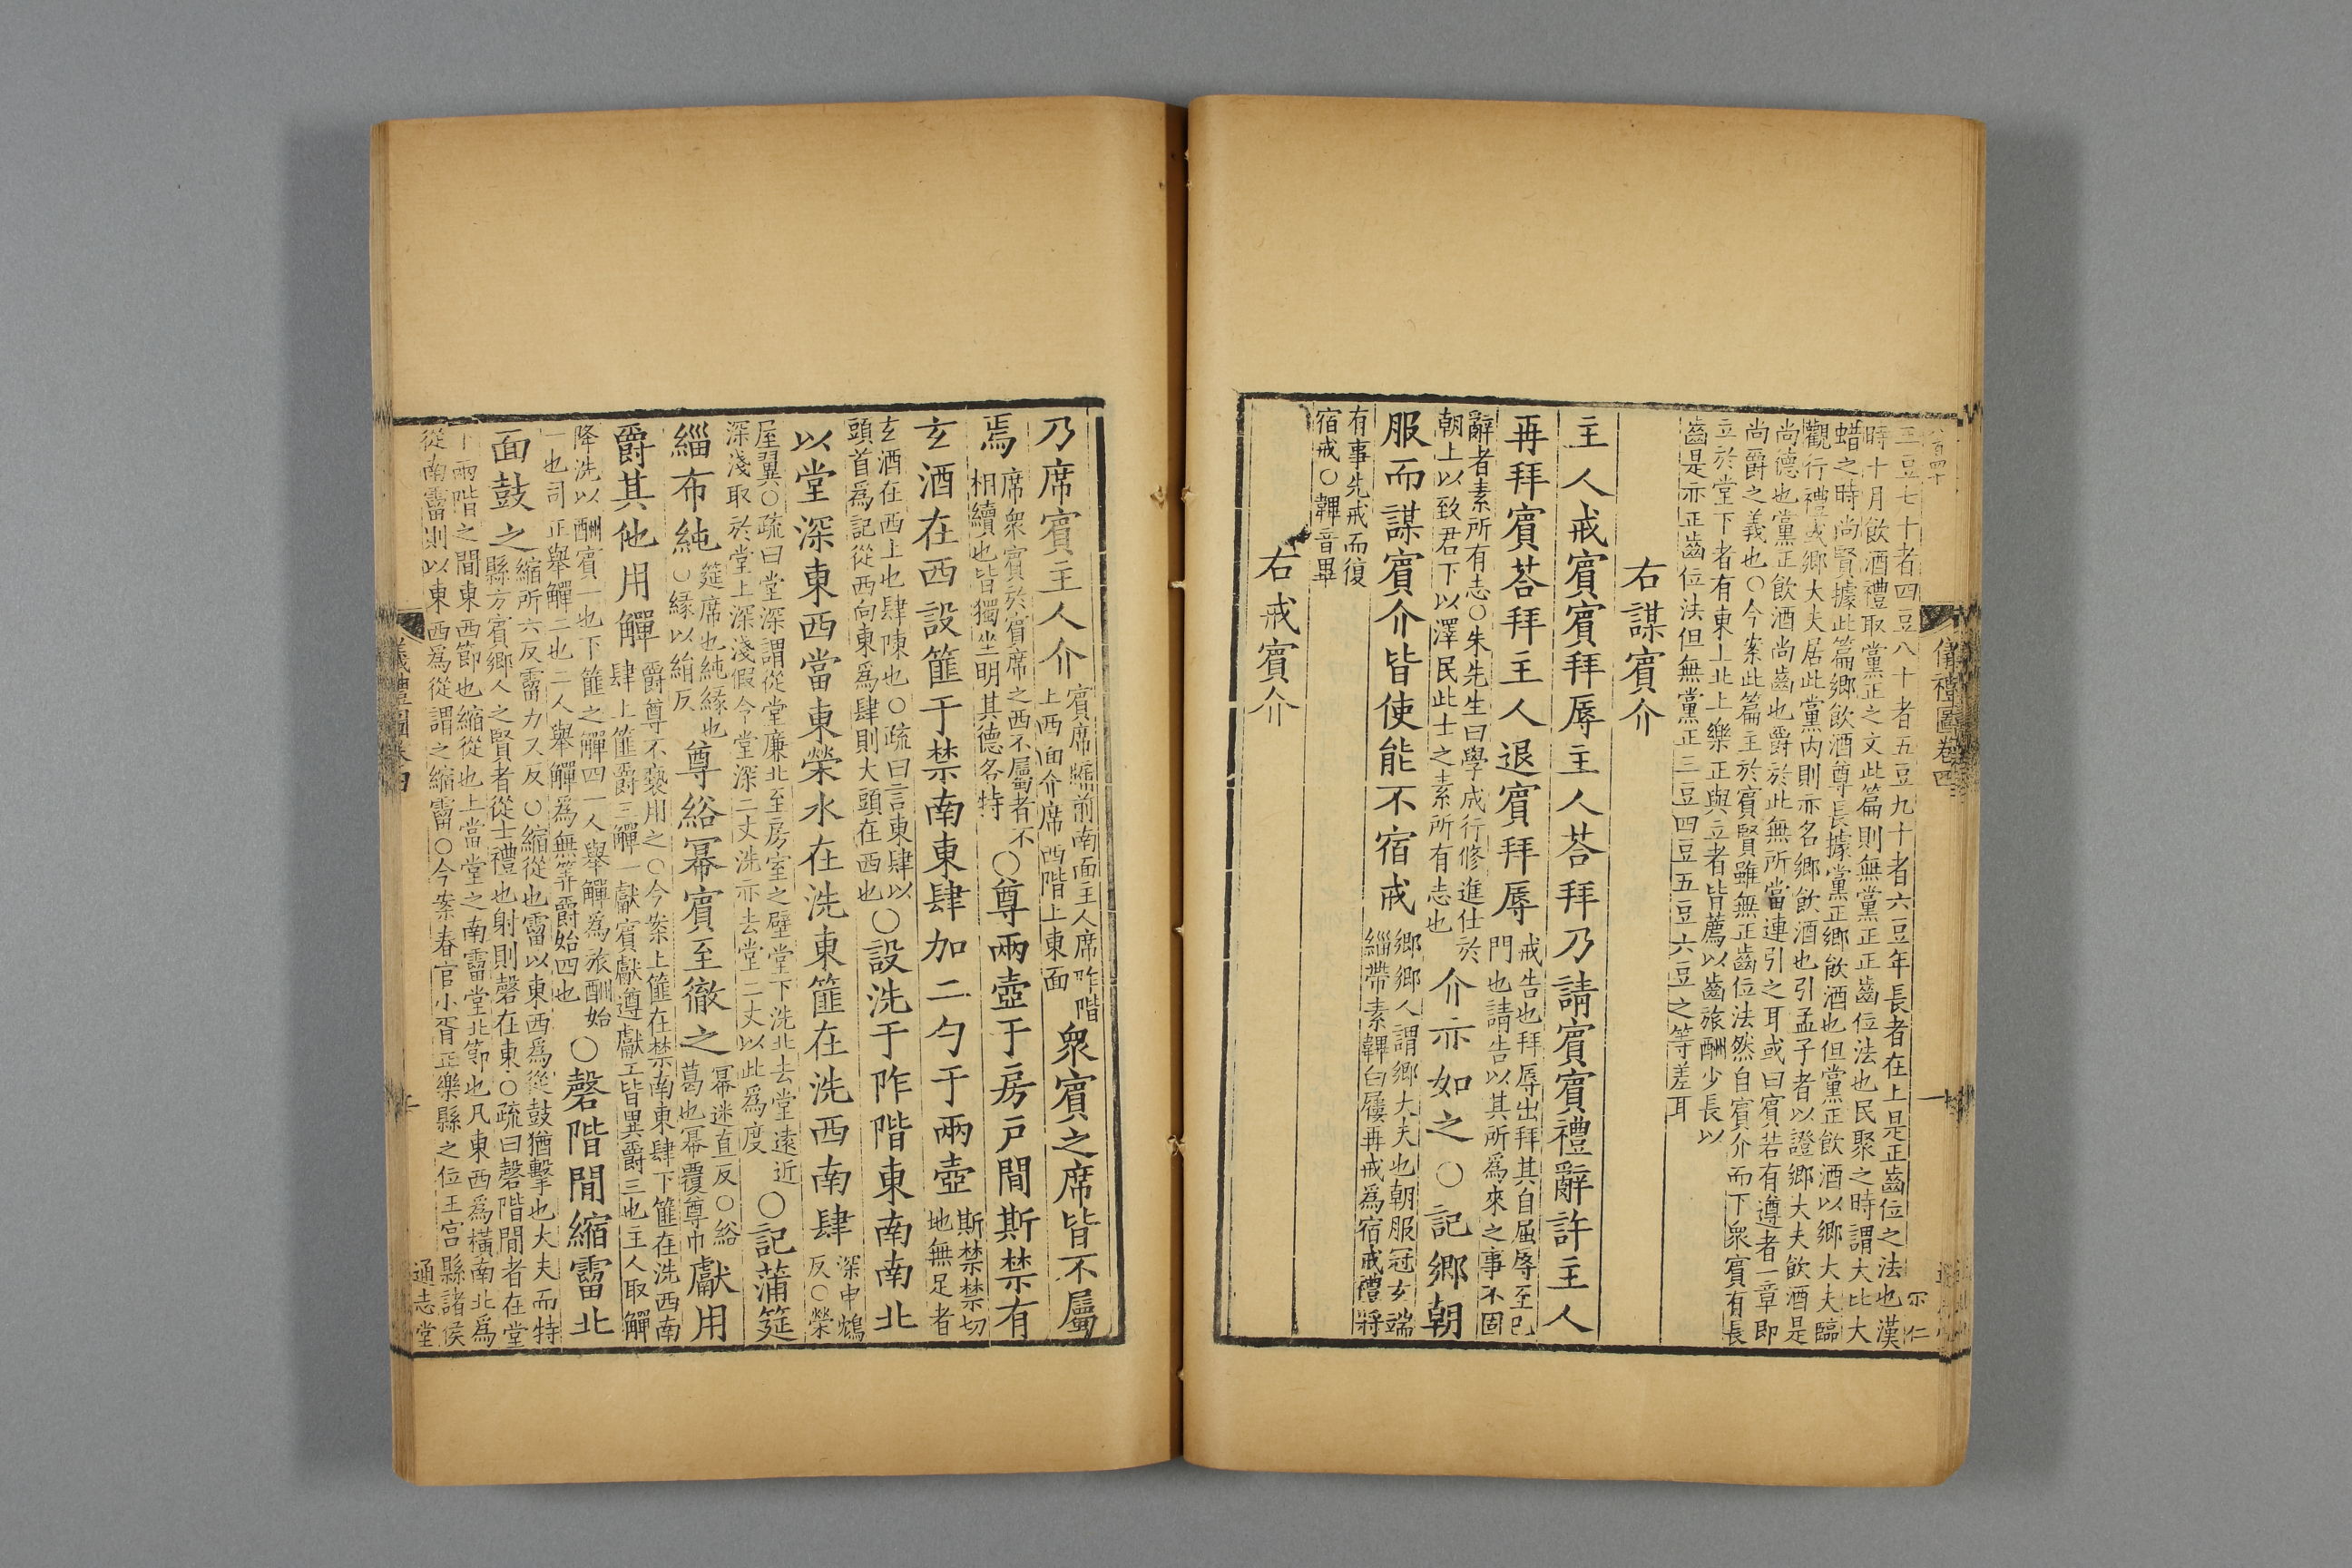 儀禮圖卷四
三豆七十者四豆八十者五豆九十者六豆年長者在上是正齒位之法也漢
時十月飲酒禮取黨正之文此篇則無黨正正齒位法也民聚之時謂大比大
蜡之時尚賢據此篇鄉飲酒尊長據黨正鄉飲酒也但黨正飲酒以鄉大夫臨
觀行禮或鄉大夫居此黨內則亦名鄉飲酒也引孟子者以證鄉大夫飲酒是
尚德也黨正飲酒尚齒也爵於此無所當連引之耳或曰賓若有遵者一章即
尚爵之義也○今案此篇主於賓賢雖無正齒位法然自賓介而下衆賓有長
立於堂下者有東上北上樂正與立者皆薦以齒旅酬少長以
齒是亦正齒位法但無黨正三豆四豆五豆六豆之等差耳
右謀賓介
主人戒賓賓拜辱主人荅拜乃請賓賓禮辭許主人
再拜賓荅拜主人退賓拜辱
戒告也拜辱出拜其自屈辱至已
門也請告以其所爲來之事不固
辭者素所有志○朱先生曰學成行修進仕於
朝上以致君下以澤民此士之素所有志也
介亦如之○記鄉朝
服而謀賓介皆使能不宿戒
鄉鄉人謂鄉大夫也朝服冠玄端
緇帶素韠白屨再戒爲宿戒禮將
有事先戒而復
宿戒○韠音畢
右戒賓介
乃席賓主人介
賓席牖前南面主人席阼階
上西面介席西階上東面
衆賓之席皆不屬
焉
席衆賓於賓席之西不屬者不
相續也皆獨坐明其德各特
○尊兩壺于房戶間斯禁有
玄酒在西設篚于禁南東肆加二勺于兩壺
斯禁禁切
地無足者
玄酒在西上也肆陳也○疏曰言東肆以
頭首爲記從西向東爲肆則大頭在西也
○設洗于阼階東南南北
以堂深東西當東榮水在洗東篚在洗西南肆
深申鴆
反○榮
屋翼○疏曰堂深謂從堂廉北至房室之壁堂下洗北去堂遠近
深淺取於堂上深淺假令堂深二丈洗亦去堂二丈以此爲度
○記蒲筵
緇布純
筵席也純緣也
○緣以絹反
尊綌幂賓至徹之
幂迷直反○綌
葛也幂覆尊巾
獻用
爵其他用觶
爵尊不褻用之○今案上篚在禁南東肆下篚在洗西南
肆上篚爵三觶一獻賓獻遵獻工皆異爵三也主人取觶
降洗以酬賓一也下篚之觶四一人舉觶爲旅酬始
一也司正舉觶二也二人舉觶爲無筭爵始四也
○磬階間縮霤北
面鼓之
縮所六反霤力又反○縮從也霤以東西爲從鼓猶擊也大夫而特
縣方賓鄉人之賢者從士禮也射則磬在東○疏曰磬階間者在堂
下兩階之間東西節也縮從也上當堂之南霤堂北節也凡東西爲橫南北爲
從南霤則以東西爲從謂之縮霤○今案春官小胥正樂縣之位王宮縣諸侯
通志堂